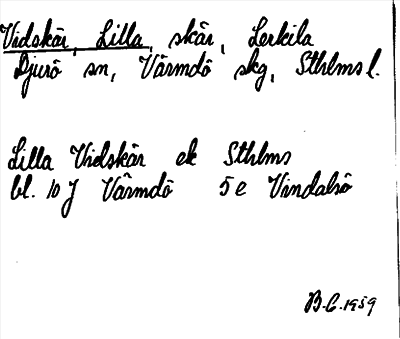 Vidskär, Lilla, skär, Lerkila
Djurö sn, Värmdö skg, Sthlms l.
Lilla Vidskär ek Sthlms
bl. 10 J Värmdö 5 e Vindalsö
B.C. 1959